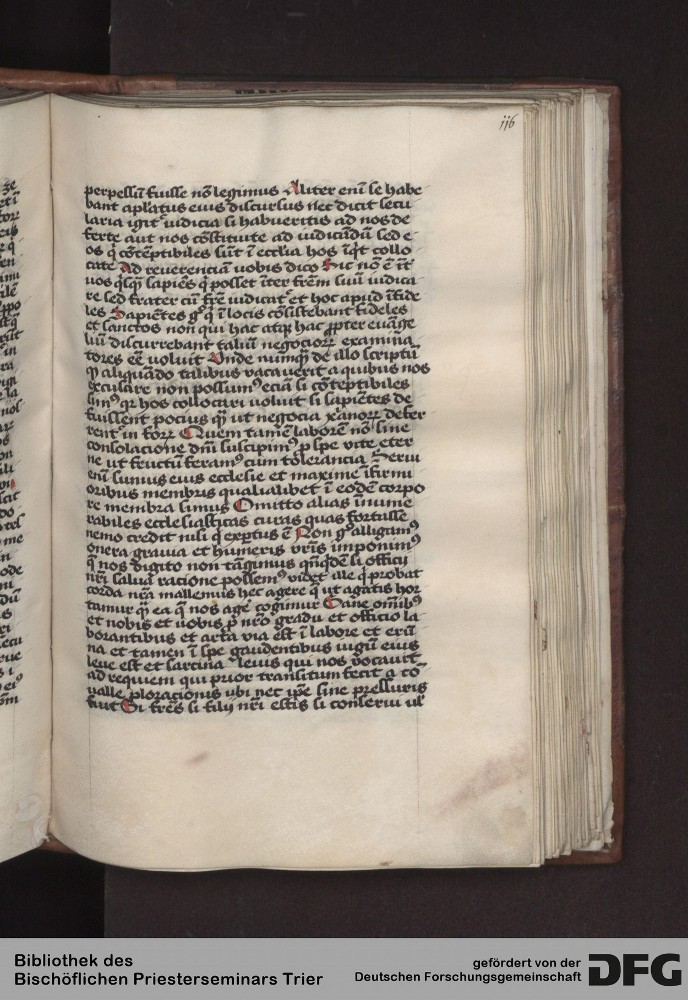 116
perpessū fuisse nō legimus Aliter enī se habe
bant apłatus eius discursus nec dicit secu
laria igit᷑ iudicia si habueritis ad nos de
ferte aut nos cōstituite ad iudicādū sed e
os q̇ cōtēptibiles sūt ī eccłia hos īq̇t collo
cate Ad reuerenciā uobis dico Sic nō ē īt᷑
uos q̇sq̄ sapiēs q̇ posset īter frēm suū iudica
re sed frater cū frē iudicat᷑ et hoc apud īfide
les Sapiētes gͦ q̇ ī locis cōsistebant fideles
et sanctos non qui hac atq; hac ꝓpter euāge
liū discurrebant taliū negociorꝝ examina
tores eē uoluit Vnde numq̄ de illo scriptū
ꝙ aliquādo talibus vacauerit a quibus nos
excusare non possumꝰ eciā si cōteptibiles
simꝰ qꝛ hos collocari uoluit si sapiētes de
fuissent pocius q̄ ut negocia xᵃnorꝝ defer
rent᷑ in forꝝ Quem tamē laborē nō sine
consolacione dn̄i suscipimꝰ ꝓ spe vite eter
ne ut fructū feramꝰ cum tolerancia Serui
enī sumus eius ecclesie et maxime īfirmi
oribus membris qualialibet ī eodē corpo
re membra simus Omitto alias īnume
rabiles ecclesiasticas curas quas fortasse
nemo credit nisi q̇ exꝑtus ē Non gͦ alligamꝰ
onera grauia et humeris vr̄is imponimꝰ
q̄ nos digito non tāgimus qn̄q̇dē si officij
nr̄i salua racione possemꝰ videt ille q̇ probat
corda nr̄a mallemus hec agere q̄ ut agatis hor
tamur q̄ ea q̄ nos agē cogimur Sane om̄ibꝰ
et nobis et uobis ꝓ nr̄o gradu et officio la
borantibus et arta via est ī labore et erū
na et tamen ī spe gaudentibus iugū eius
leue est et sarcina leuis qui nos vocauit
ad requiem qui prior transitum fecit a cō
ualle ploracionis ubi nec ip̄e sine pressuris
fuit Si frēs si filij nr̄i estis si conserui ul᷑
Bibliothek des
Bischöflichen Priesterseminars Trier
gefördert von der
Deutschen Forschungsgemeinschaft
DFG